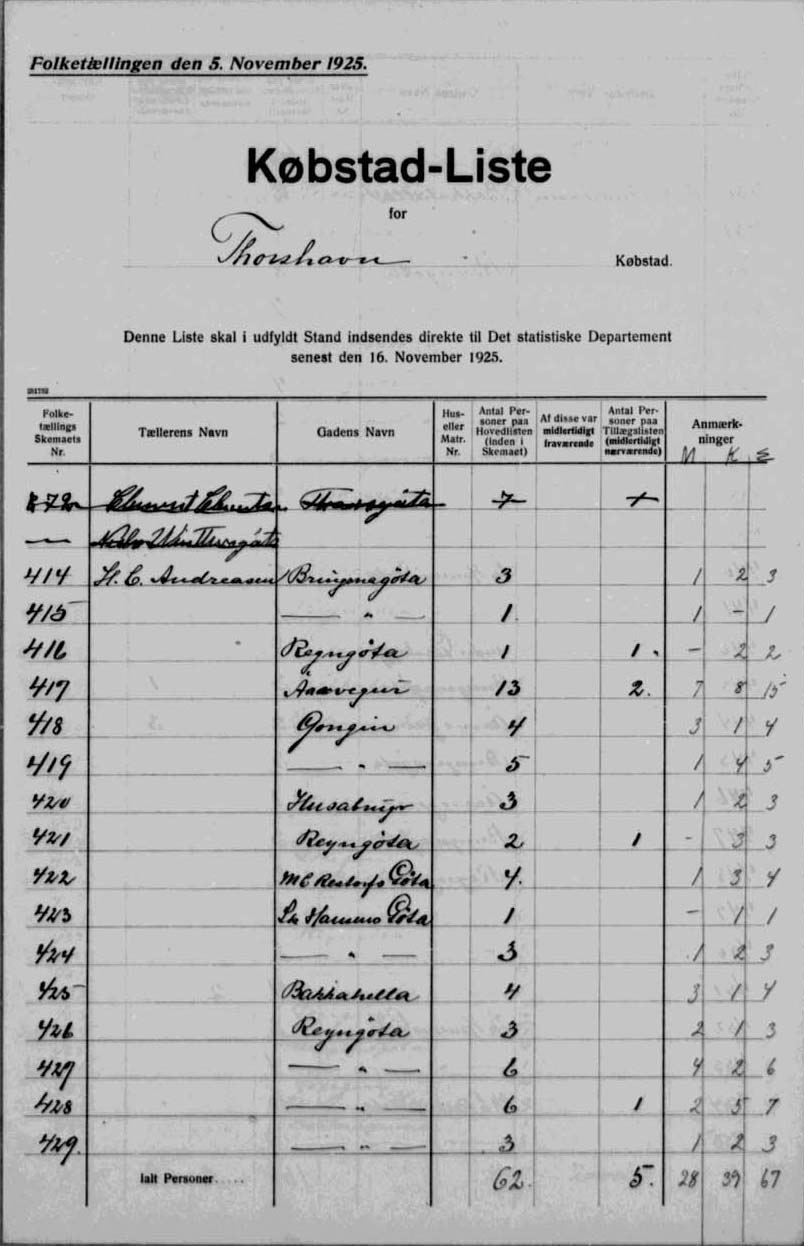 Folketællingen den 5. November 1925.
Købstad-Liste
for
Thorshavn Købstad.
Denne Liste skal i udfyldt Stand indsendes direkte til Det statistiske Departement
senest den 16. November 1925.
Folketællings Skemaets Nr. Tællerens Navn Gadens Navn Hus- eller Matr. Nr. Antal Personer paa Hovedlisten (inden i Skemaet) Af disse var midlertidigt fraværende Antal Personer paa Tillægslisten (midlertidigt nærværende) Anmærkninger M K S
7
414 H. C. Andreasen Bringsnagøta 3 1 2 3
415 — " — 1. 1 - 1
416 Reyngøta 1 1. - 2 2
417 Aarvegur 13 2. 7 8 15
418 Gongin 4 3 1 4
419 — " — 5 1 4 5
420 Husabrugv 3 1 2 3
421 Reyngøta 2 1 - 3 3
422 M C Restorfs Gøta 4. 1 3 4
423 Gøta 1 - 1 1
424 — " — 3 1 2 3
425 Bakkahella 4 3 1 4
426 Reyngøta 3 2 1 3
427 — " — 6 4 2 6
428 — " — 6 1 2 5 7
429. — " — 3 1 2 3
Ialt Personer..... 62. 5. 28 39 67